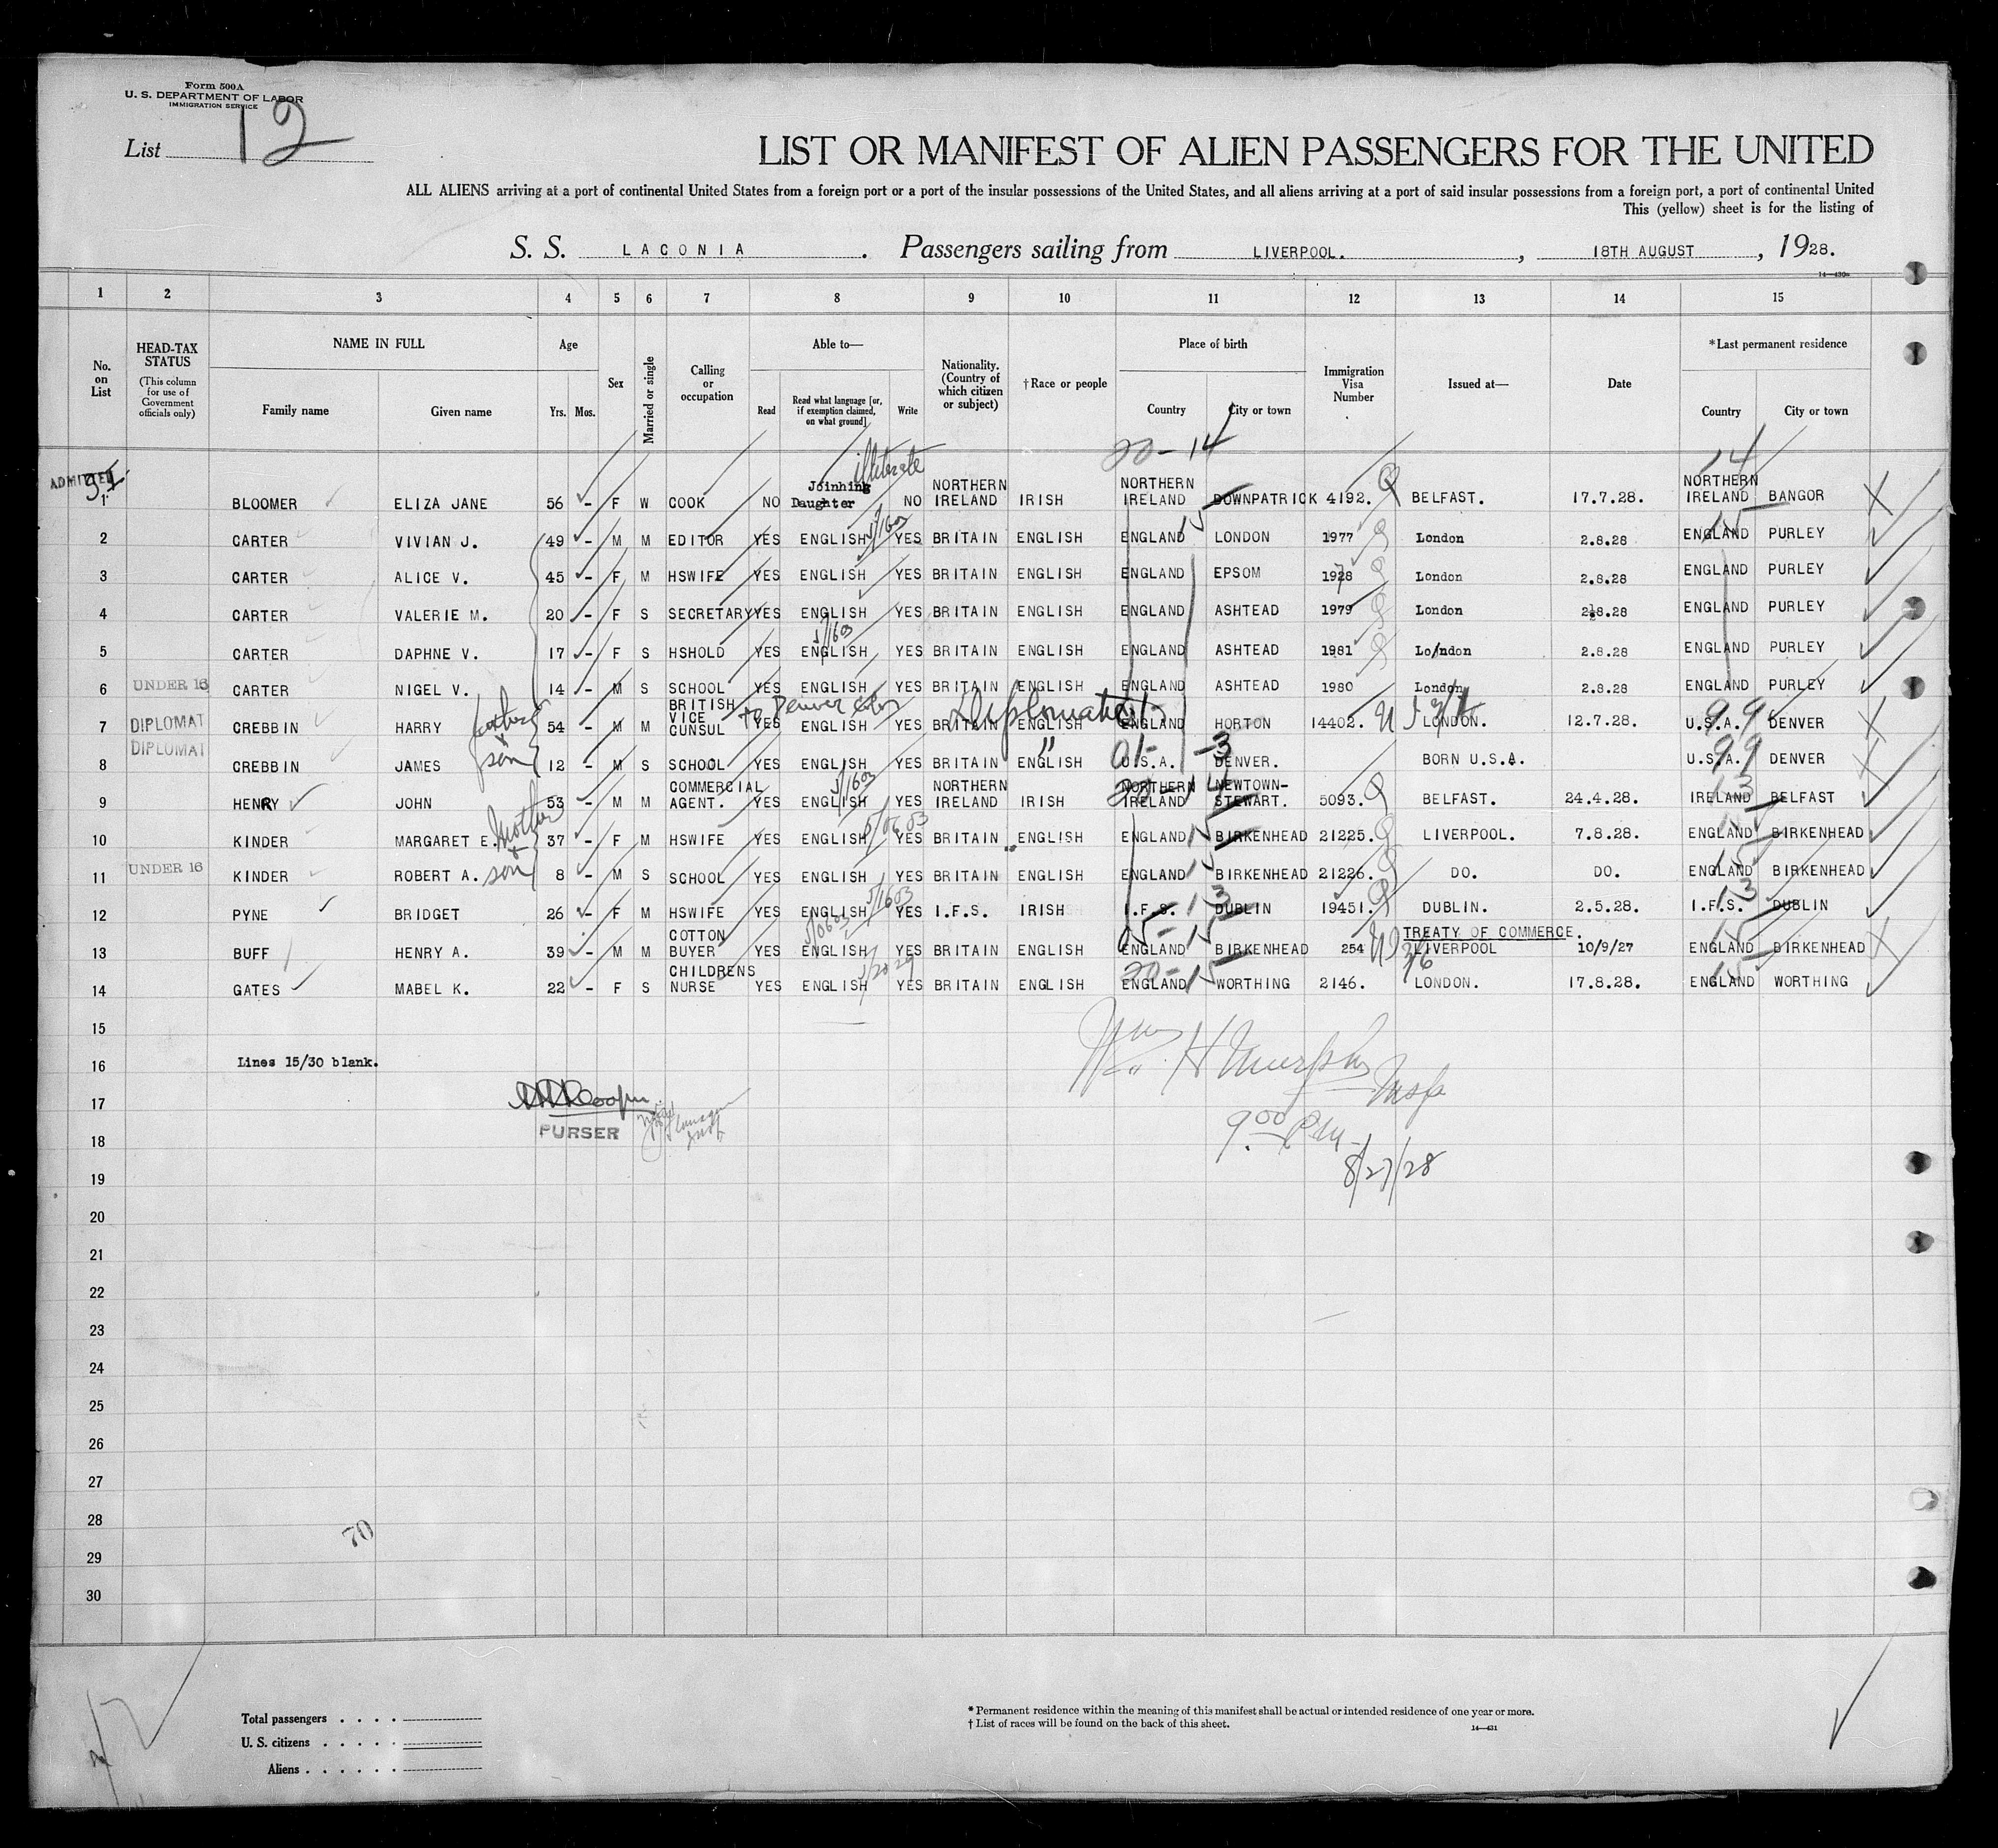 Form 500A
U. S. DEPARTMENT OF LABOR
IMMIGRATION SERVICE
List 12
LIST OR MANIFEST OF ALIEN PASSENGERS FOR THE UNITED
ALL ALIENS arriving at a port of continental United States from a foreign port or a port of the insular possessions of the United States, and all aliens arriving at a port of said insular possessions from a foreign port, a port of continental United
This (yellow) sheet is for the listing of
S. S. LACONIA. Passengers sailing from LIVERPOOL. , 18TH AUGUST , 1928.
14—430
1 2 3 4 5 6 7 8 9 10 11 12 13 14 15
No. on List
HEAD-TAX STATUS (This column for use of Government officials only)
NAME IN FULL Family name Given name
Age Yrs. Mos.
Sex
Married or single
Calling or occupation
Able to— Read Read what language [or, if exemption claimed, on what ground] Write
Nationality. (Country of which citizen or subject)
†Race or people
Place of birth Country City or town
Immigration Visa Number
Issued at—
Date
*Last permanent residence Country City or town
20-14 14
ADMITTED illiterate
1 BLOOMER ELIZA JANE 56 - F W COOK NO Joinhing Daughter NO NORTHERN IRELAND IRISH NORTHERN IRELAND DOWNPATRICK 4192. BELFAST. 17.7.28. NORTHERN IRELAND BANGOR
2 CARTER VIVIAN J. 49 - M M EDITOR YES ENGLISH YES BRITAIN ENGLISH ENGLAND LONDON 1977 London 2.8.28 ENGLAND PURLEY
3 CARTER ALICE V. 45 - F M HSWIFE YES ENGLISH YES BRITAIN ENGLISH ENGLAND EPSOM 1928 London 2.8.28 ENGLAND PURLEY
4 CARTER VALERIE M. 20 - F S SECRETARY YES ENGLISH YES BRITAIN ENGLISH ENGLAND ASHTEAD 1979 London 2.8.28 ENGLAND PURLEY
5 CARTER DAPHNE V. 17 - F S HSHOLD YES ENGLISH YES BRITAIN ENGLISH ENGLAND ASHTEAD 1981 Lo/ndon 2.8.28 ENGLAND PURLEY
6 UNDER 16 CARTER NIGEL V. 14 - M S SCHOOL YES ENGLISH YES BRITAIN ENGLISH ENGLAND ASHTEAD 1980 London 2.8.28 ENGLAND PURLEY
7 DIPLOMAT CREBBIN HARRY father & son 54 - M M BRITISH VICE CUNSUL YES to Denver Colo ENGLISH YES BRITAIN ENGLISH Diplomatic ENGLAND HORTON 14402. LONDON. 12.7.28. U.S.A. 99 DENVER
8 DIPLOMAT CREBBIN JAMES 12 - M S SCHOOL YES ENGLISH YES BRITAIN ENGLISH " U.S.A. DENVER. BORN U.S.A. U.S.A. 99 DENVER
9 HENRY JOHN 53 - M M COMMERCIAL AGENT. YES ENGLISH YES NORTHERN IRELAND IRISH NORTHERN IRELAND NEWTOWN-STEWART. 5093. BELFAST. 24.4.28. IRELAND BELFAST
10 KINDER MARGARET E. Mother & son 37 - F M HSWIFE YES ENGLISH YES BRITAIN ENGLISH ENGLAND BIRKENHEAD 21225. LIVERPOOL. 7.8.28. ENGLAND BIRKENHEAD
11 UNDER 16 KINDER ROBERT A. 8 - M S SCHOOL YES ENGLISH YES BRITAIN ENGLISH ENGLAND BIRKENHEAD 21226. DO. DO. ENGLAND BIRKENHEAD
12 PYNE BRIDGET 26 - F M HSWIFE YES ENGLISH YES I.F.S. IRISH I.F.S. 13 DUBLIN 19451. DUBLIN. 2.5.28. I.F.S. 13 DUBLIN
13 BUFF HENRY A. 39 - M M COTTON BUYER YES ENGLISH YES BRITAIN ENGLISH ENGLAND BIRKENHEAD 254 TREATY OF COMMERCE. LIVERPOOL 10/9/27 ENGLAND BIRKENHEAD
14 GATES MABEL K. 22 - F S CHILDRENS NURSE YES ENGLISH YES BRITAIN ENGLISH ENGLAND 20-15 WORTHING 2146. LONDON. 17.8.28. ENGLAND WORTHING
15
16 Lines 15/30 blank.
Wm. H Murphy Insp
17
PURSER
9.00 P.M.
18
8/27/28
19
20
21
22
23
24
25
26
27
28
70
29
30
Total passengers . . . .
U. S. citizens . . . . .
Aliens . . . . . .
* Permanent residence within the meaning of this manifest shall be actual or intended residence of one year or more.
† List of races will be found on the back of this sheet.
14—431